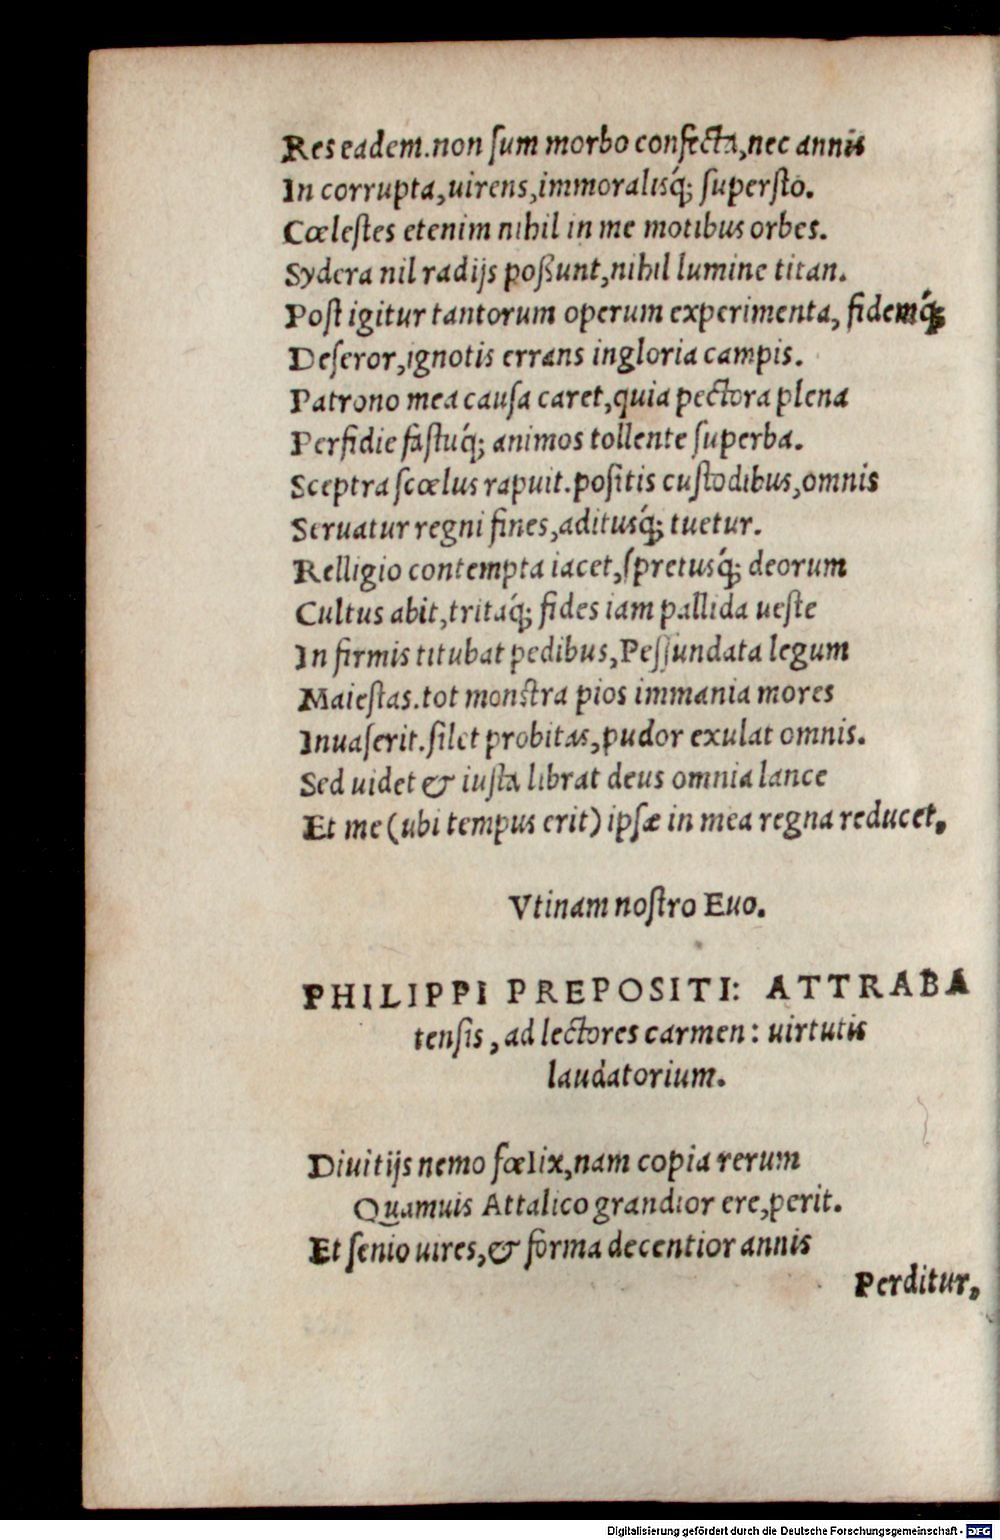 Res eadem. non ſum morbo confecta, nec annis
In corrupta, uirens, immoraliſq́; ſuperſto.
Cœleſtes etenim nihil in me motibus orbes.
Sydera nil radijs poßunt, nihil lumine titan.
Poſt igitur tantorum operum experimenta, fidemq́;
Deſeror, ignotis errans ingloria campis.
Patrono mea cauſa caret, quia pectora plena
Perfidie faſtuq́; animos tollente ſuperba.
Sceptra ſcœlus rapuit. poſitis cuſtodibus, omnis
Seruatur regni fines, adituſq́; tuetur.
Relligio contempta iacet, ſpretuſq́; deorum
Cultus abit, tritaq́; fides iam pallida ueſte
In firmis titubat pedibus, Peſſundata legum
Maieſtas. tot monſtra pios immania mores
Inuaſerit. ſilet probitas, pudor exulat omnis.
Sed uidet & iuſta librat deus omnia lance
Et me (ubi tempus erit) ipſæ in mea regna reducet,
Vtinam noſtro Euo.
PHILIPPI PREPOSITI: ATTRABA
tenſis, ad lectores carmen: uirtutis
laudatorium.
Diuitijs nemo fœlix, nam copia rerum
Quamuis Attalico grandior ere, perit.
Et ſenio uires, & forma decentior annis
Perditur,
Digitalisierung gefördert durch die Deutsche Forschungsgemeinschaft - DFG